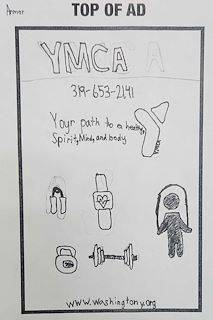 Armor
TOP OF AD
YMCA
319-653-2141
Your path to a healthy
Spirit, Mind, and body
www.washingtony.org